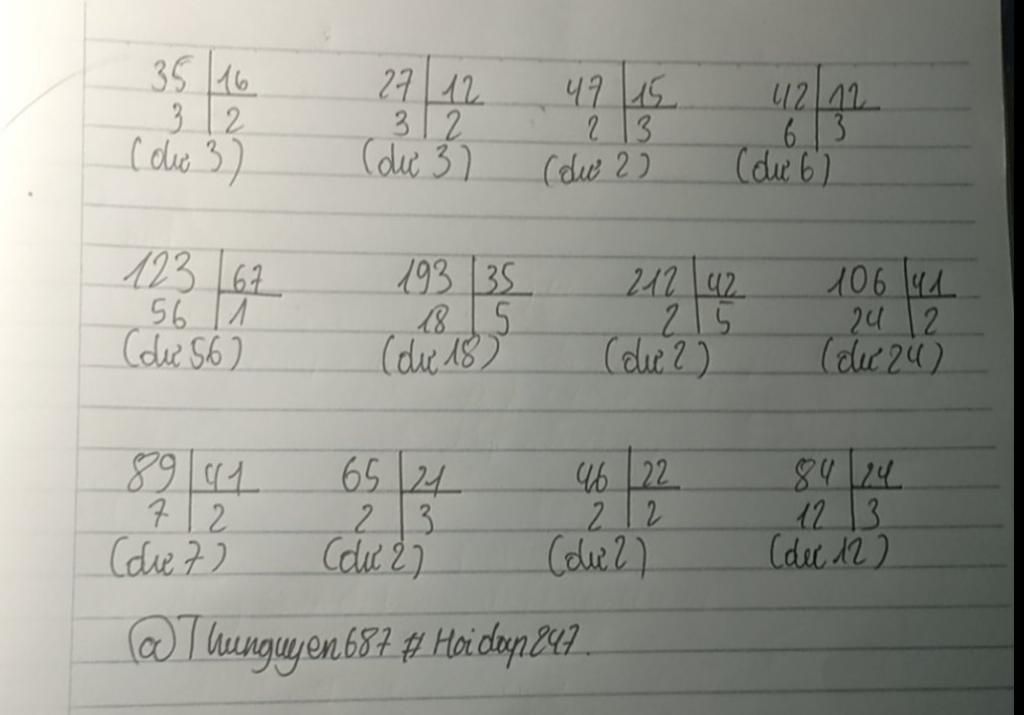 35 16 27 12 47 15 42 12
3 2 3 2 2 3 6 3
(dư 3) (dư 3) (dư 2) (dư 6)
123 67 193 35 212 42 106 41
56 1 18 5 2 5 24 2
(dư 56) (dư 18) (dư 2) (dư 24)
89 41 65 21 46 22 84 24
7 2 2 3 2 2 12 3
(dư 7) (dư 2) (dư 2) (dư 12)
@Thunguyen687 # Hoidap247.